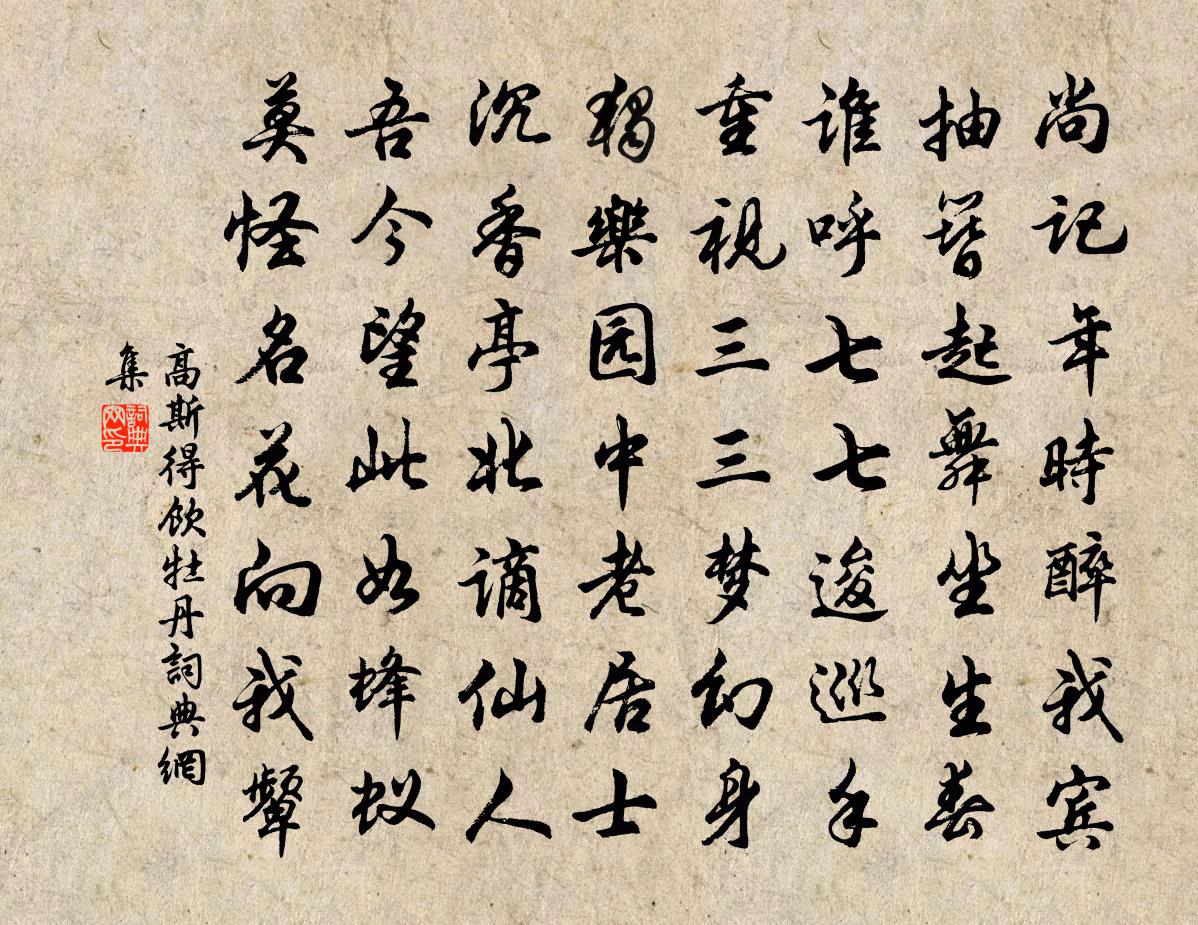 尚记年時醉我宾
抽簪起舞坐生春
谁呼七七逡巡手
重视三三梦幻身
独樂园中老居士
沉香亭北谪仙人
吾今望此如蜂蚁
莫怪名花向我颦
高斯得飲牡丹詞典網
集
詞典网印